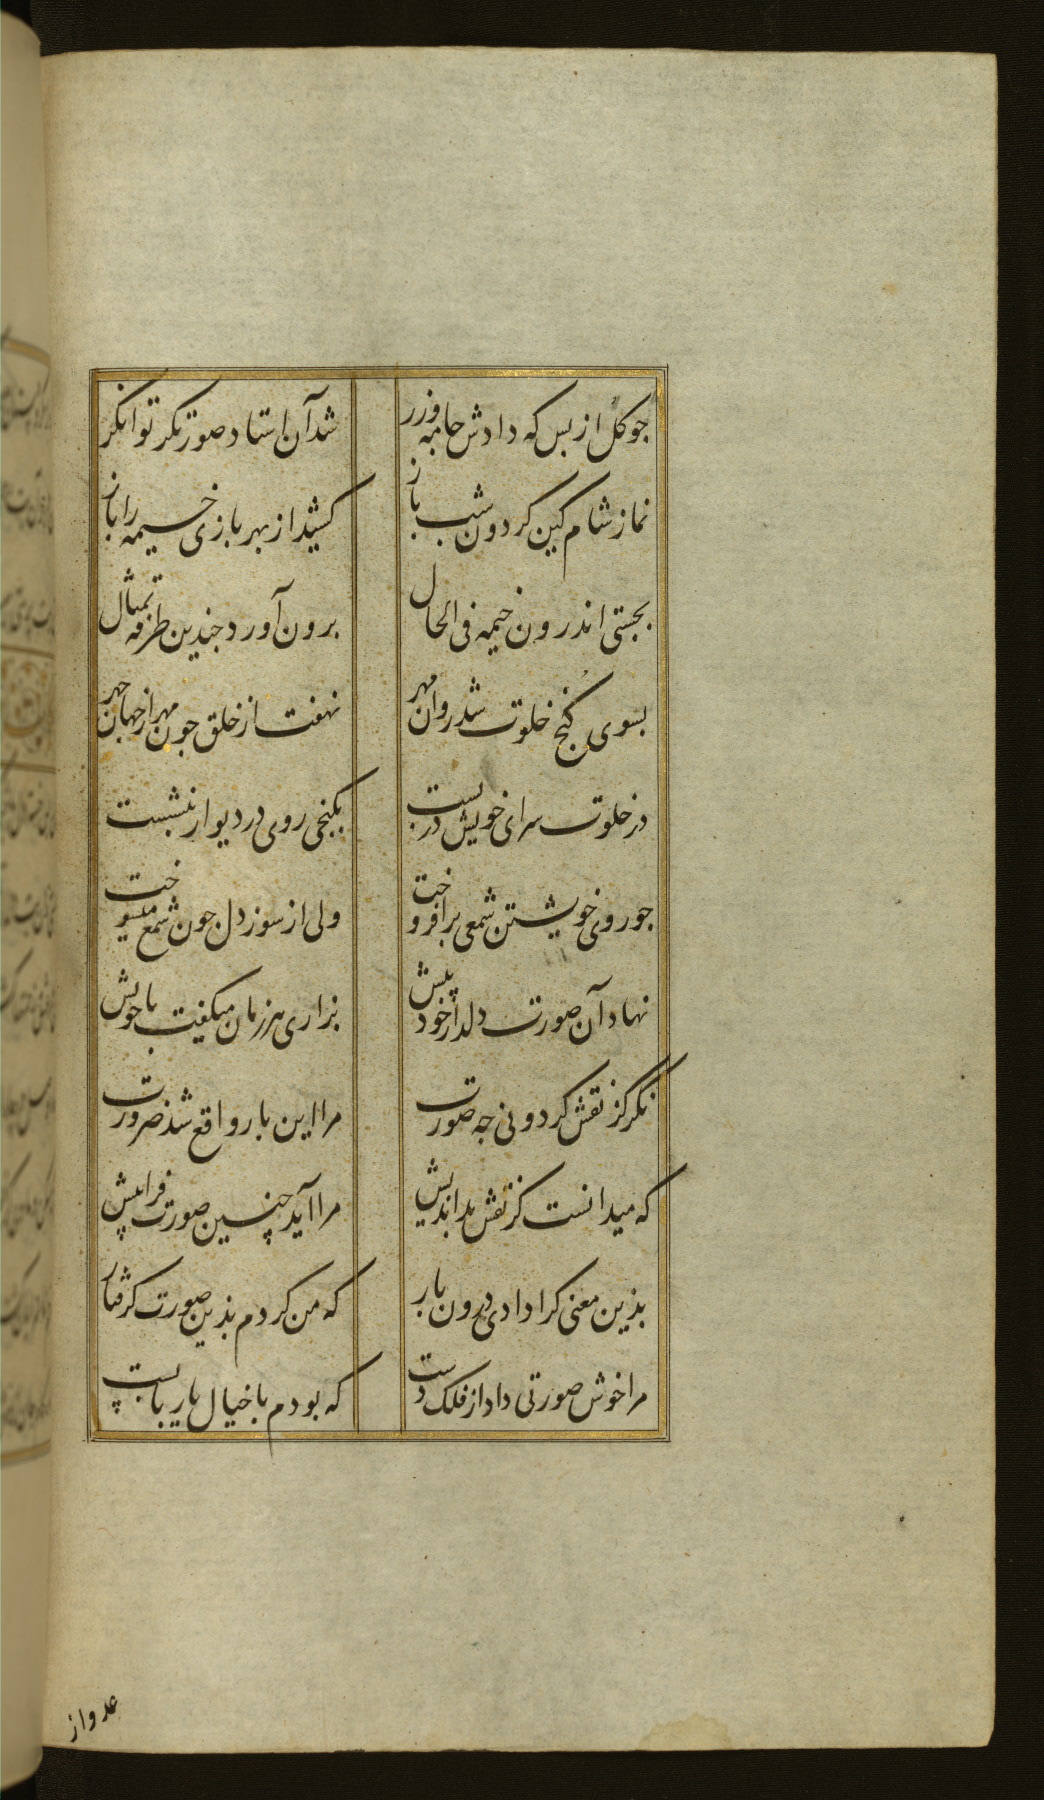 جو کل از بس که دادش جامه و زر شد آن استاد صورتکر توانکر
نماز شام کین کردون شب باز کشید از بهر بازی خیمه را باز
بجستی اندرون خیمه فی الحال برون آورد جندین طرفه تمثال
بسوی کنج خلوت شد روان مهر نهفت از خلق جون مهر از جهان جهر
در خلوت سرای خویش در بست بکنجی روی در دیوار بنشست
جو روی خویشتن شمعی برافروخت ولی از سوز دل جون شمع میسوخت
نهاد آن صورت دلدار خود پیش بزاری هر زمان میکفت با خویش
نکر کز نقش کردونی جه صورت مرا این بار واقع شد ضرورت
که میدانست کز نقش بداندیش مرا آید چنین صورت فرا پیش
بذین معنی کرا دادی درون بار که من کردم بذین صورت کرفتار
مرا خوش صورتی داد از فلک دست که بودم با خیال یار پابست
عدو از